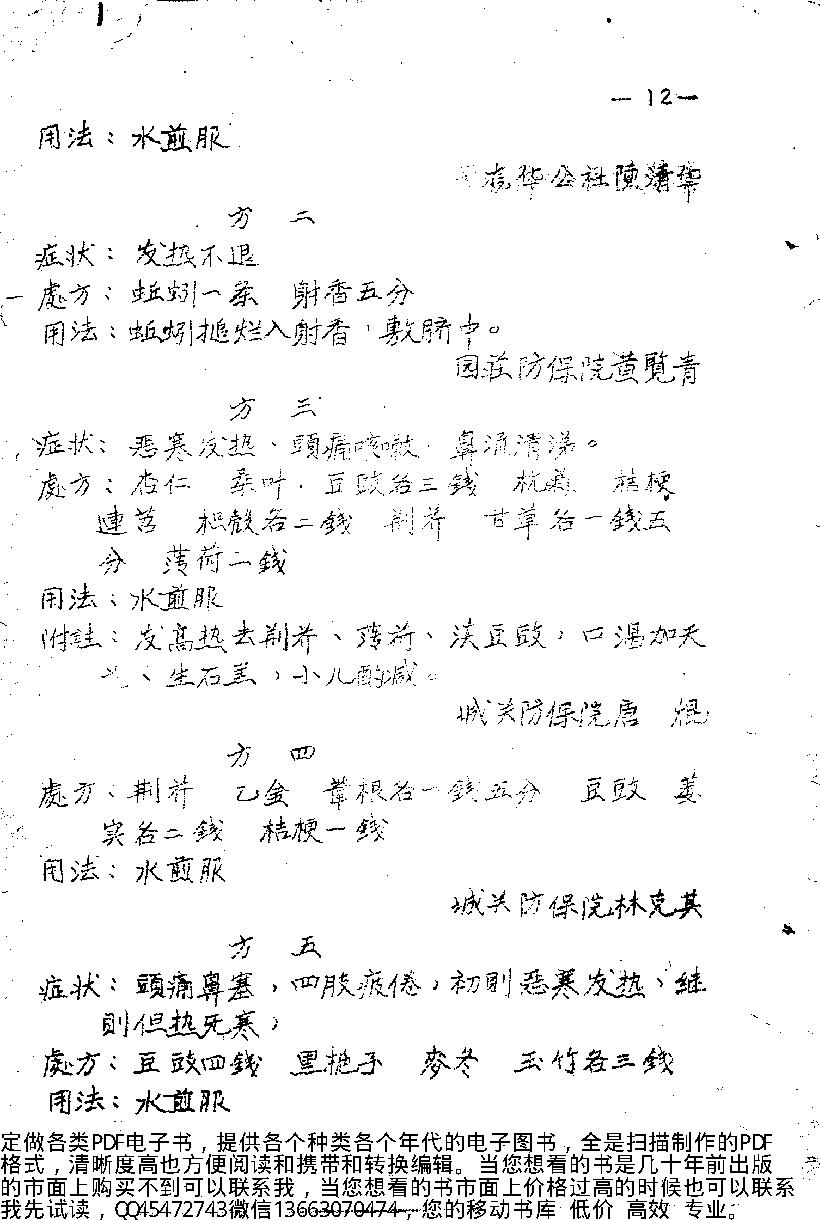 — 12 —
用法：水煎服
华公社陳清华
方 二
症状：发热不退
處方：蚯蚓一条 射香五分
用法：蚯蚓搥烂入射香，敷脐中。
园莊防保院黄覧青
方 三
症状：恶寒发热、頭痛咳嗽、鼻流清涕。
處方：杏仁 桑叶、豆豉各三錢 杭菊 桔梗
連苕 枳殼各二錢 荆芥 甘草各一錢五
分 薄荷二錢
用法：水煎服
附註：发高热去荆芥、薄荷、淡豆豉，口渴加天
、生石羔，小儿酌减。
城关防保院唐 焜
方 四
處方、荆芥 乙金 葦根各一錢五分 豆豉 蒌
实各二錢 桔梗一錢
用法：水煎服
城关防保院林克其
方 五
症状：頭痛鼻塞，四肢疲倦，初則恶寒发热、继
則但热无寒，
處方：豆豉四錢 黑梔子 麥冬 玉竹各三錢
用法：水煎服
定做各类PDF电子书，提供各个种类各个年代的电子图书，全是扫描制作的PDF
格式，清晰度高也方便阅读和携带和转换编辑。当您想看的书是几十年前出版
的市面上购买不到可以联系我，当您想看的书市面上价格过高的时候也可以联系
我先试读，QQ45472743微信13663070474，您的移动书库 低价 高效 专业。